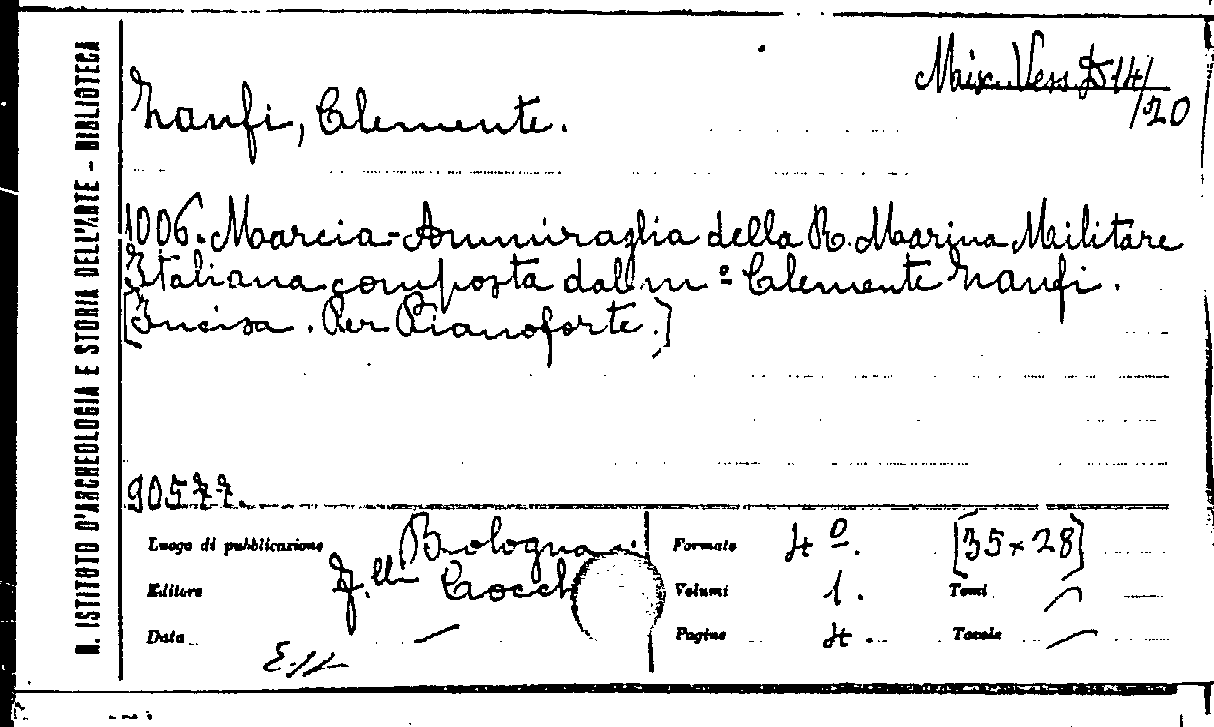 R. ISTITUTO D'ARCHEOLOGIA E STORIA DELL'ARTE - BIBLIOTECA
Misc. Vess. D 14/20
Zanfi, Clemente.
1006. Marcia-Ammiraglia della R. Marina Militare
Italiana composta dal mº Clemente Zanfi.
[Incisa. Per Pianoforte.]
90577.
Luogo di pubblicazione Bologna
Formato 4º. [35 x 28]
Editore F.lli Cocchi
Volumi 1. Tomi —
Data —
Pagine 4. Tavole —